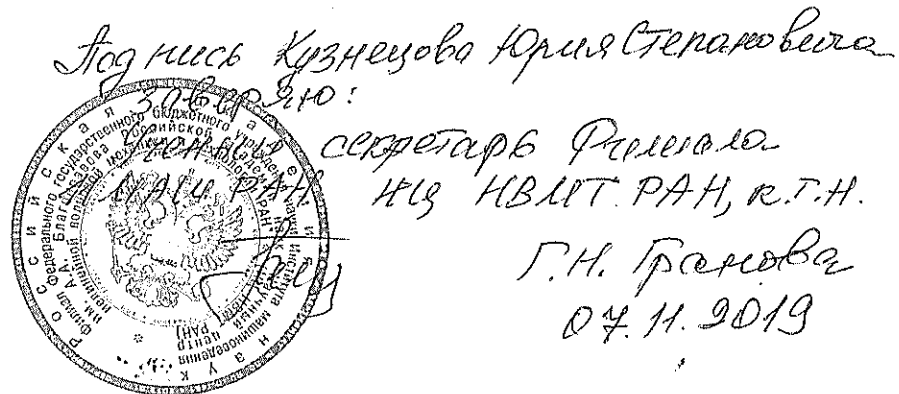 Подпись Кузнецова Юрия Степановича
заверяю:
Ученый секретарь Филиала
ИМАШ РАН НЦ НВМТ РАН, к.т.н.
Г.Н. Гранова
07.11.2019
Российская академия наук
Филиал Федерального государственного бюджетного учреждения науки Института машиноведения
им. А.А. Благонравова Российской академии наук
нелинейной волновой механики
центр
РАН)